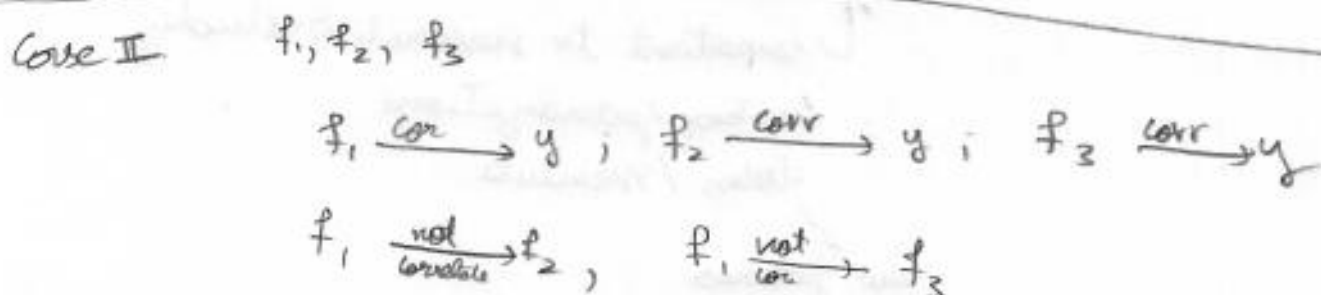 Case II f₁, f₂, f₃
f₁ cor → y ; f₂ corr → y ; f₃ corr → y
f₁ not correlate → f₂ , f₁ not cor → f₃